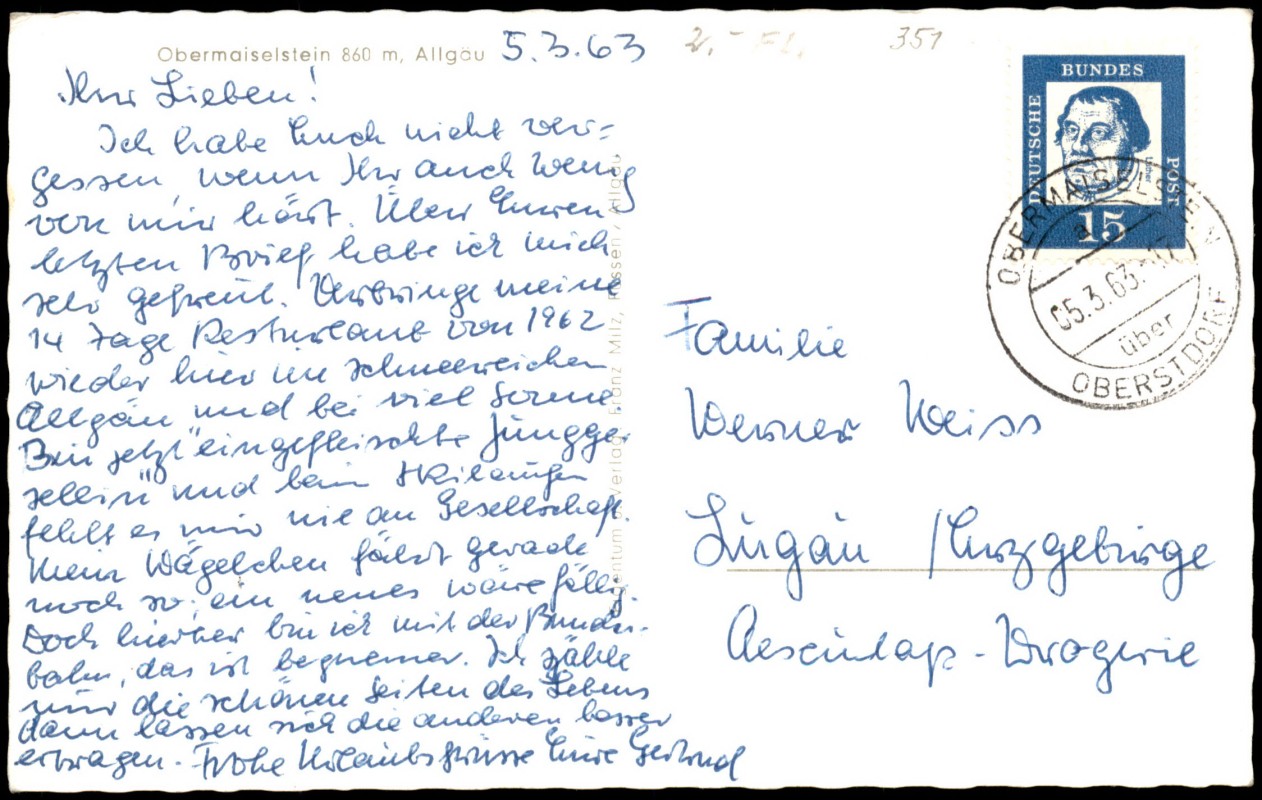 Obermaiselstein 860 m, Allgäu
5.3.63
2,- FL.
351
Ihr Lieben!
Ich habe Euch nicht ver=
gessen, wenn Ihr auch wenig
von mir hört. Über Euren
letzten Brief habe ich mich
sehr gefreut. Verbringe meine
14 Tage Resturlaub von 1962
wieder hier im schneereichen
Allgäu und bei viel Sonne.
Bin jetzt "eingefleischte Jungge=
sellin" und beim Skilaufen
fehlt es mir nie an Gesellschaft.
Mein Wägelchen fährt gerade
noch so, ein neues wäre fällig.
Doch hierher bin ich mit der Bundes-
bahn, das ist bequemer. Ich zähle
nur die schönen Seiten des Lebens
dann lassen sich die anderen besser
ertragen. Frohe Urlaubsgrüsse Eure Gertrud
Eigentum u. Verlag: Franz Milz, Füssen / Allgäu
DEUTSCHE BUNDES POST
Luther
15
OBERMAISELSTEIN
a
05.3.63.-17
über
OBERSTDORF
Familie
Werner Weiss
Lugau / Erzgebirge
Aesculap-Drogerie